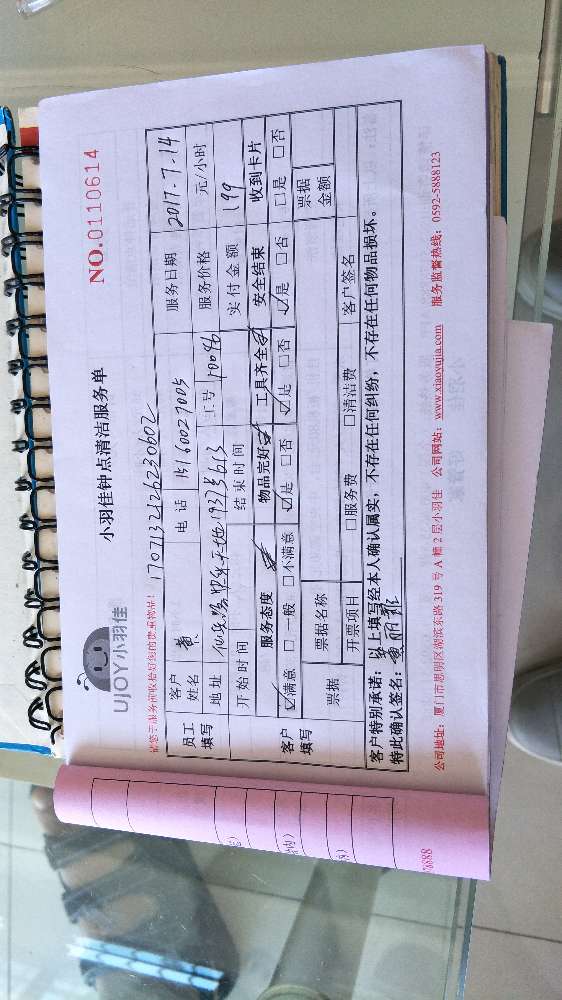 UJOY小羽佳
小羽佳钟点清洁服务单
NO.0110614
请您于服务前收拾好您的贵重物品!
1707132126230602
员工填写
客户姓名 黄 电话 15160027005 服务日期 2017-7-14
地址 工号 10096 服务价格 元/小时
开始时间 结束时间 实付金额 199
客户填写
服务态度 物品完好 工具齐全 安全结束 收到卡片
☑满意 □一般 □不满意 ☑是 □否 ☑是 □否 ☑是 □否 □是 □否
票据 票据名称 票据金额
开票项目 □服务费 □清洁费 客户签名
客户特别承诺:以上填写经本人确认属实,不存在任何纠纷,不存在任何物品损坏。
特此确认签名:
公司地址:厦门市思明区湖滨东路319号A幢2层小羽佳 公司网站:www.xiaoyujia.com 服务监督热线:0592-5888123